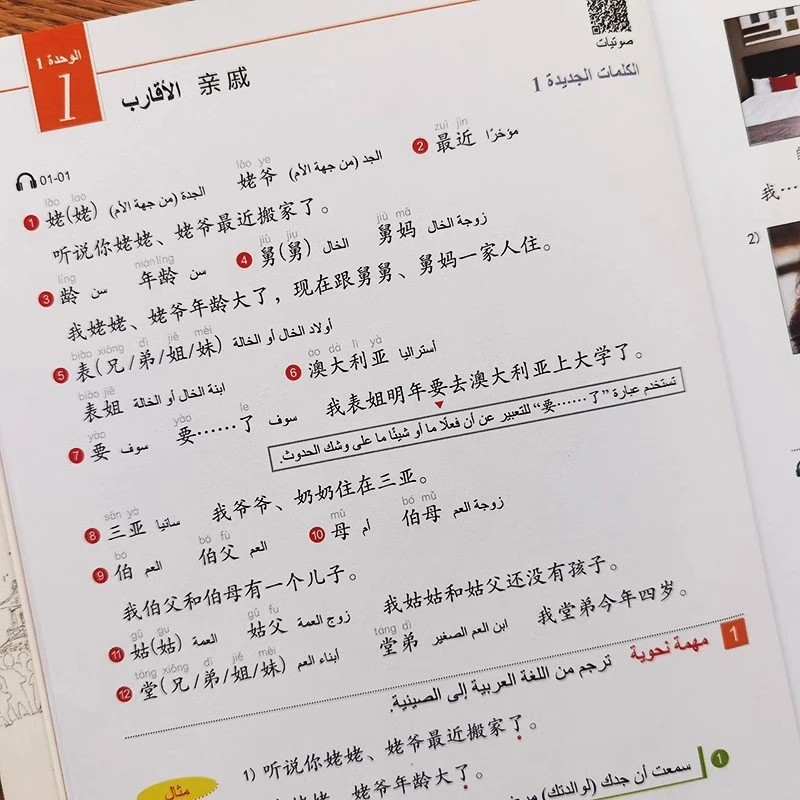 الوحدة 1
1
الأقارب 亲戚
صوتيات
الكلمات الجديدة 1
01-01
lǎo lao lǎo ye zuì jìn
1 姥(姥) الجدة (من جهة الأم) 姥爷 الجد (من جهة الأم) 2 最近 مؤخرًا
听说你姥姥、姥爷最近搬家了。
líng niánlíng jiù jiu jiù mā
3 龄 سن 年龄 سن 4 舅(舅) الخال 舅妈 زوجة الخال
我姥姥、姥爷年龄大了，现在跟舅舅、舅妈一家人住。
biǎo xiōng dì jiě mèi ào dà lì yà
5 表(兄/弟/姐/妹) أولاد الخال أو الخالة 6 澳大利亚 أستراليا
biǎo jiě
表姐 ابنة الخال أو الخالة 我表姐明年要去澳大利亚上大学了。
yào yào le
7 要 سوف 要……了 سوف
تستخدم عبارة "要……了" للتعبير عن أن فعلًا ما أو شيئًا ما على وشك الحدوث.
sān yà
8 三亚 سانيا 我爷爷、奶奶住在三亚。
bó bó fù mǔ bó mǔ
9 伯 العم 伯父 العم 10 母 أم 伯母 زوجة العم
我伯父和伯母有一个儿子。
gū gu gū fu
11 姑(姑) العمة 姑父 زوج العمة 我姑姑和姑父还没有孩子。
táng xiōng dì jiě mèi táng dì
12 堂(兄/弟/姐/妹) أبناء العم 堂弟 ابن العم الصغير 我堂弟今年四岁。
1 مهمة نحوية ترجم من اللغة العربية إلى الصينية.
مثال
1) 听说你姥姥、姥爷最近搬家了。
姥姥、姥爷年龄大了。
1 سمعت أن جدك (لوالدتك)
我……
2)